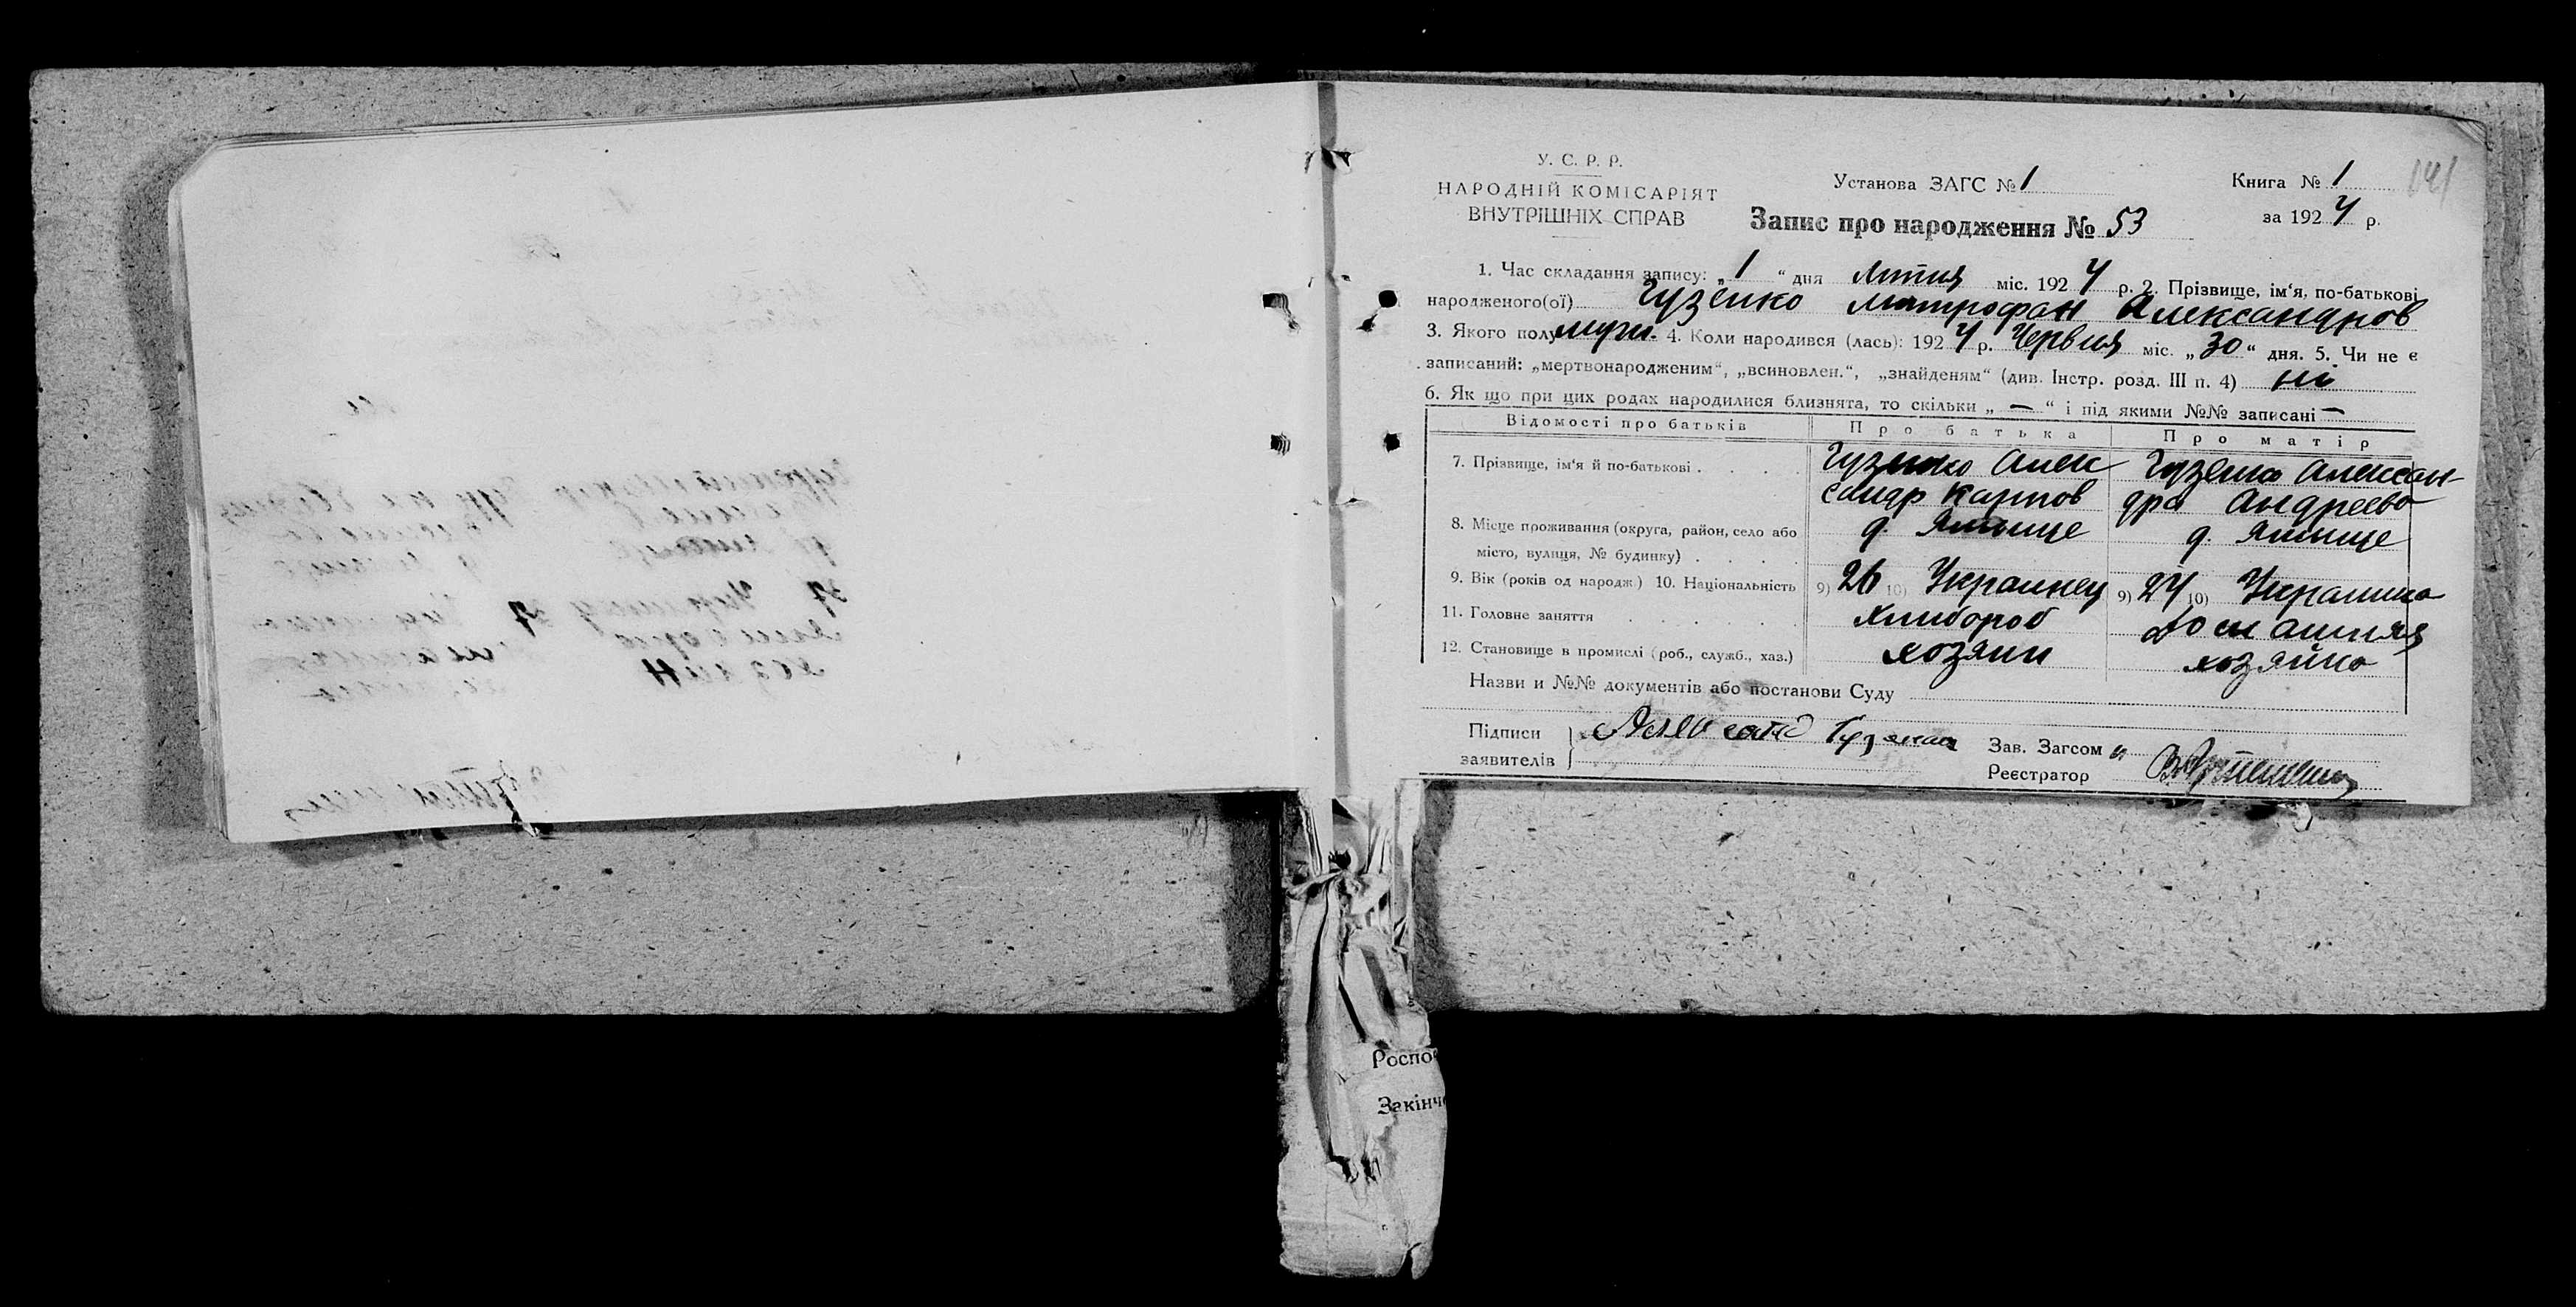 У. С. Р. Р.
НАРОДНІЙ КОМІСАРІЯТ
ВНУТРІШНІХ СПРАВ
Установа ЗАГС № 1
Книга № 1
за 1924 р.
Запис про народження № 53
1. Час складання запису: „1“ дня липця міс. 1924 р. 2. Прізвище, ім'я, по-батькові
народженого(ої) Гузенко Митрофан Александров
3. Якого полу муж. 4. Коли народився (лась): 1924 р. Червня міс. „30“ дня. 5. Чи не є
записаний: „мертвонародженим“, „всиновлен.“, „знайденям“ (див. Інстр. розд. III п. 4) ні
6. Як що при цих родах народилися близнята, то скільки „—“ і під якими №№ записані —
Відомості про батьків Про батька Про матір
7. Прізвище, ім'я й по-батькові . . . . Гузенко Алек Гузенко Алексан-
сандр Карпов дра Андреева
8. Місце проживання (округа, район, село або д. д.
місто, вулиця, № будинку) . . . .
9. Вік (років од народж.) 10. Національність 9) 26 10) Украинец 9) 24 10) Украинка
11. Головне заняття . . . . . хлибороб домашняя
12. Становище в промислі (роб., служб., хаз.) хозяин хозяйка
Назви и №№ документів або постанови Суду
Підписи
заявителів
Гузенко
Зав. Загсом и
Реєстратор
Роспо
Закінч